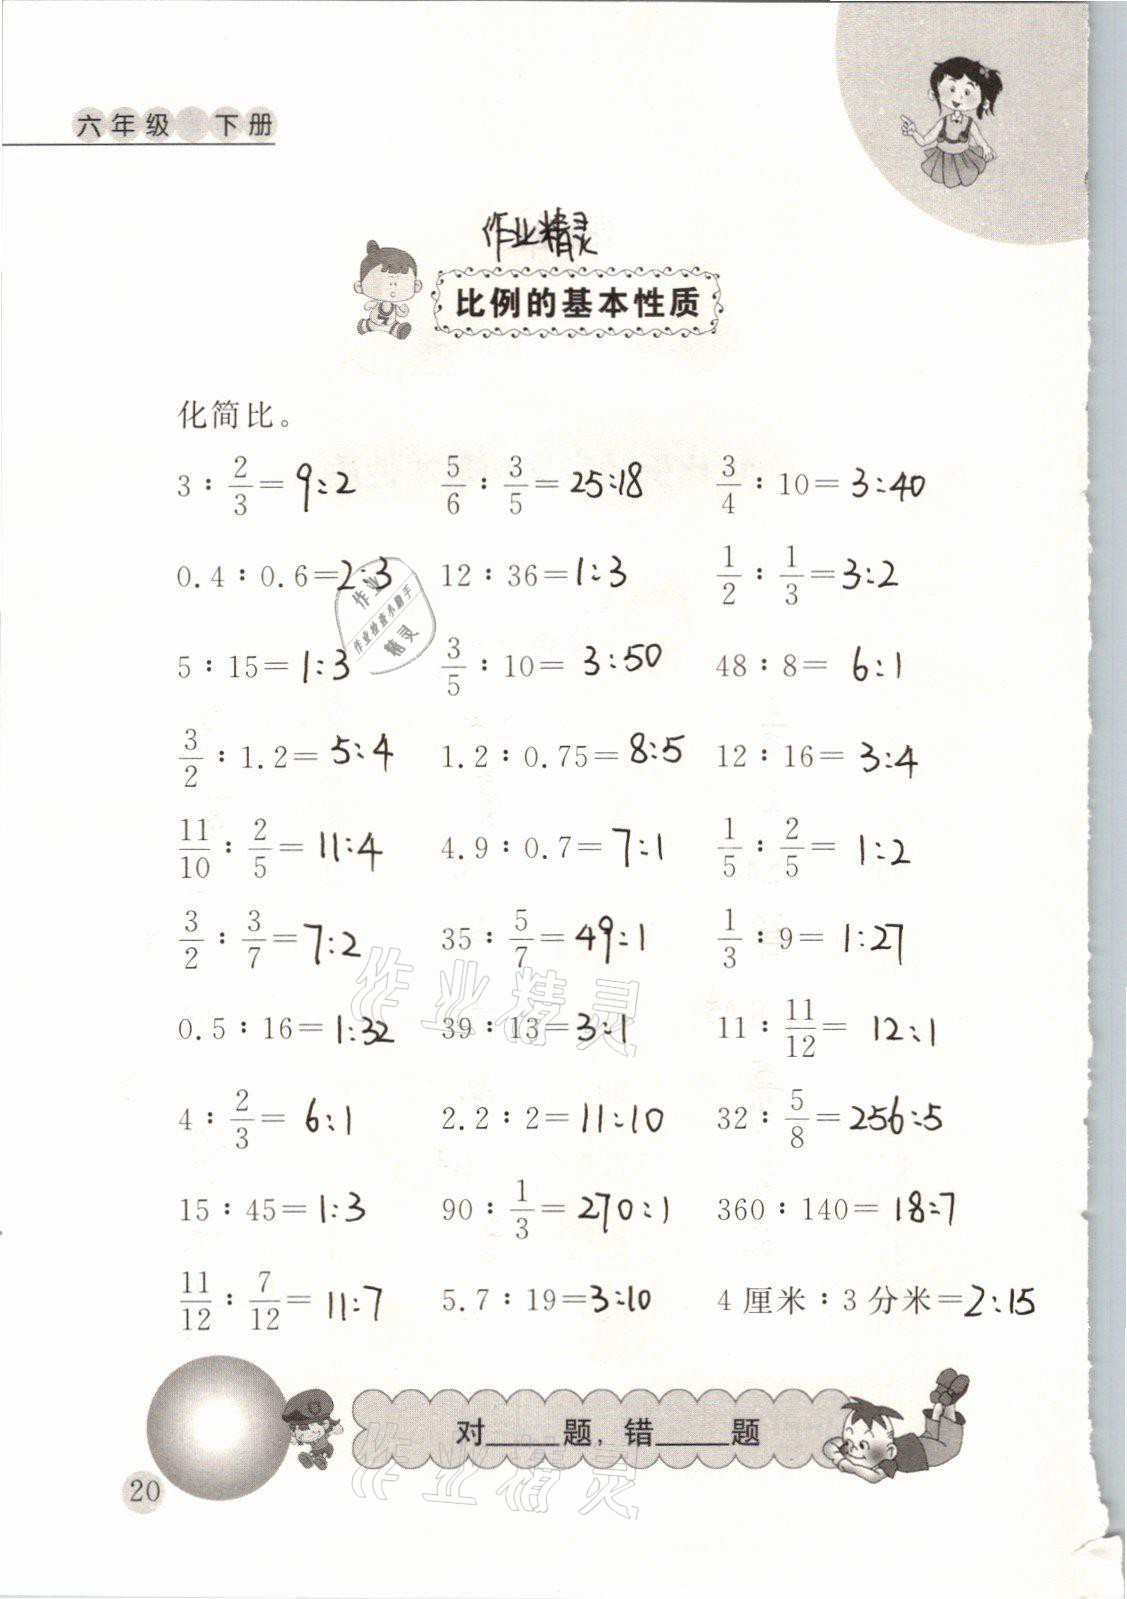 六年级 下册
作业精灵
比例的基本性质
化简比。
3∶2/3=9:2 5/6∶3/5=25:18 3/4∶10=3:40
0.4∶0.6=2:3 12∶36=1:3 1/2∶1/3=3:2
作业
作业检查小助手
精灵
5∶15=1:3 3/5∶10=3:50 48∶8=6:1
3/2∶1.2=5:4 1.2∶0.75=8:5 12∶16=3:4
11/10∶2/5=11:4 4.9∶0.7=7:1 1/5∶2/5=1:2
3/2∶3/7=7:2 35∶5/7=49:1 1/3∶9=1:27
作业精灵
0.5∶16=1:32 39∶13=3:1 11∶11/12=12:1
4∶2/3=6:1 2.2∶2=11:10 32∶5/8=256:5
15∶45=1:3 90∶1/3=270:1 360∶140=18:7
11/12∶7/12=11:7 5.7∶19=3:10 4厘米∶3分米=2:15
对____题，错____题
作业精灵
20